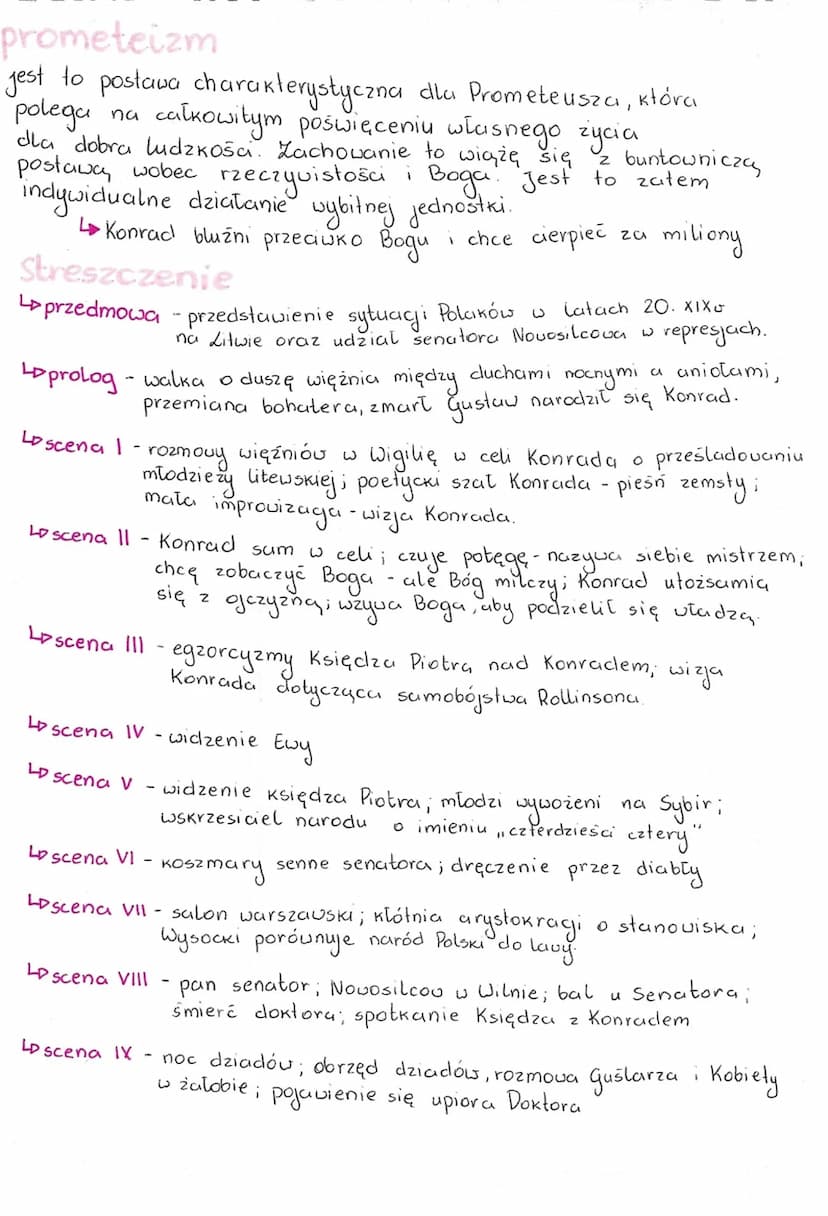 prometeizm
jest to postawa charakterystyczna dla Prometeusza, która
polega na całkowitym poświęceniu własnego życia
dla dobra ludzkości. Zachowanie to wiążę się z buntowniczą
postawą wobec rzeczywistości i Boga. Jest to zatem
indywidualne działanie wybitnej jednostki.
↳ Konrad bluźni przeciwko Bogu i chce cierpieć za miliony
Streszczenie
↳ przedmowa - przedstawienie sytuacji Polaków w latach 20. XIXw
na Litwie oraz udział senatora Nowosilcowa w represjach.
↳ prolog - walka o duszę więźnia między duchami nocnymi a aniołami,
przemiana bohatera, zmarł Gustaw narodził się Konrad.
↳ scena I - rozmowy więźniów w Wigilię w celi Konrada o prześladowaniu
młodzieży litewskiej; poetycki szał Konrada - pieśń zemsty;
mała improwizacja - wizja Konrada.
↳ scena II - Konrad sam w celi; czuje potęgę - nazywa siebie mistrzem;
chcę zobaczyć Boga - ale Bóg milczy; Konrad utożsamia
się z ojczyzną; wzywa Boga, aby podzielił się władzą.
↳ scena III - egzorcyzmy Księdza Piotra nad Konradem; wizja
Konrada dotycząca samobójstwa Rollinsona
↳ scena IV - widzenie Ewy
↳ scena V - widzenie księdza Piotra; młodzi wywożeni na Sybir;
wskrzesiciel narodu o imieniu „czterdzieści cztery"
↳ scena VI - koszmary senne senatora; dręczenie przez diabły
↳ scena VII - salon warszawski; kłótnia arystokracji o stanowiska;
Wysocki porównuje naród Polski do lawy.
↳ scena VIII - pan senator; Nowosilcow w Wilnie; bal u Senatora;
śmierć doktora; spotkanie Księdza z Konradem
↳ scena IX - noc dziadów; obrzęd dziadów, rozmowa Guślarza i Kobiety
w żałobie; pojawienie się upiora Doktora